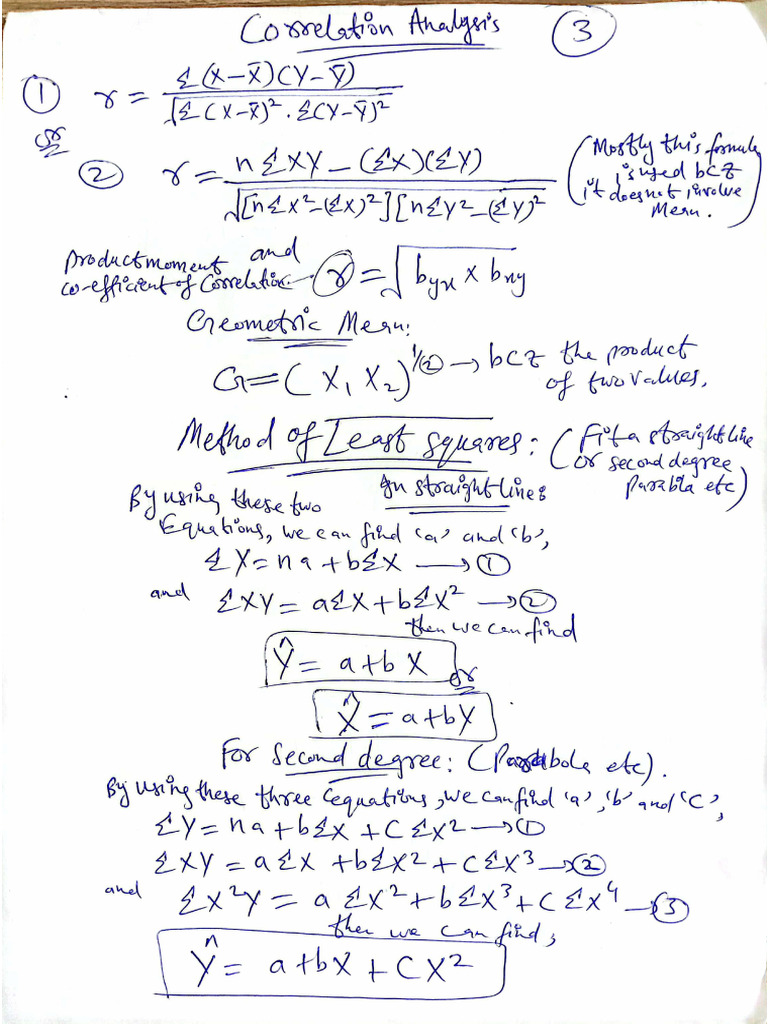 Correlation Analysis ③
① r = Σ(X-X̄)(Y-Ȳ) / √Σ(X-X̄)². Σ(Y-Ȳ)²
or
② r = nΣXY-(ΣX)(ΣY) / √[nΣX²-(ΣX)²][nΣY²-(ΣY)²
(Mostly this formula
is used bcz
it does not involve
Mean.)
Product moment and
co-efficient of Correlation. r = √byx × bxy
Geometric Mean:
G = (X₁ X₂)^1/② → bcz the product
of two values.
Method of Least squares: (Fit a straight line
or second degree
Parabla etc)
By using these two In straight line:
Equations, we can find 'a' and 'b',
ΣY = na + bΣX → ①
and ΣXY = aΣX + bΣX² → ②
then we can find
Ŷ = a+b X
or
X̂ = a+bY
For Second degree: (Parabola etc).
By using these three equations, we can find 'a', 'b' and 'c',
ΣY = na + bΣX + CΣX² → ①
ΣXY = aΣX + bΣX² + CΣX³ → ②
and ΣX²Y = aΣX² + bΣX³ + CΣX⁴ → ③
then we can find,
Ŷ = a+bX + CX²